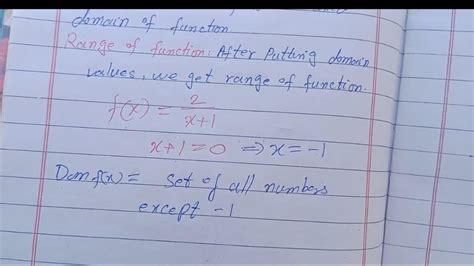 domain of function
Range of function: After Putting domain
values, we get range of function.
f(x) = 2/x+1
x+1=0 ⇒ x=-1
Dom f(x) = Set of all numbers
except -1